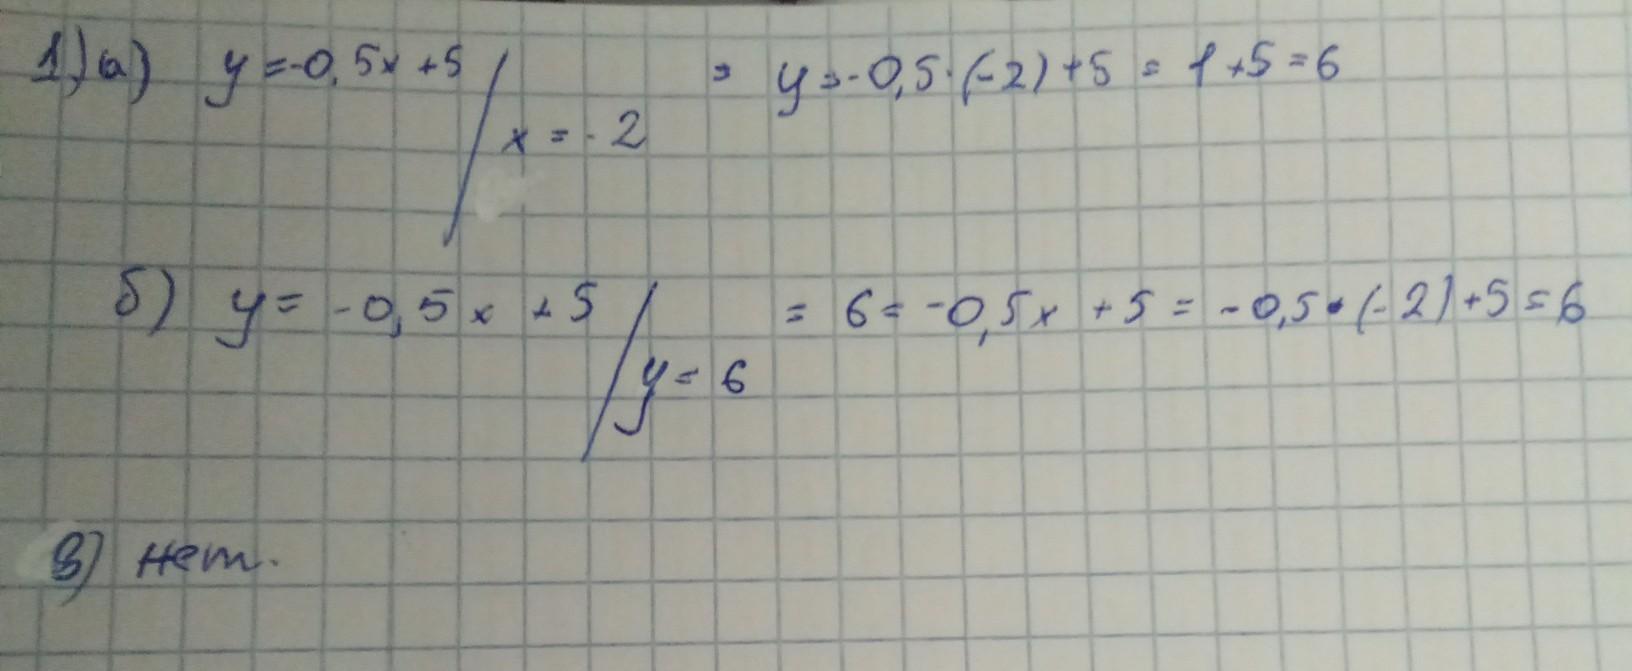 1) а) y = -0,5x + 5 / x = -2 = y = -0,5 · (-2) + 5 = 1 + 5 = 6
б) y = -0,5x + 5 / y = 6 = 6 = -0,5x + 5 = -0,5 · (-2) + 5 = 6
в) нет.